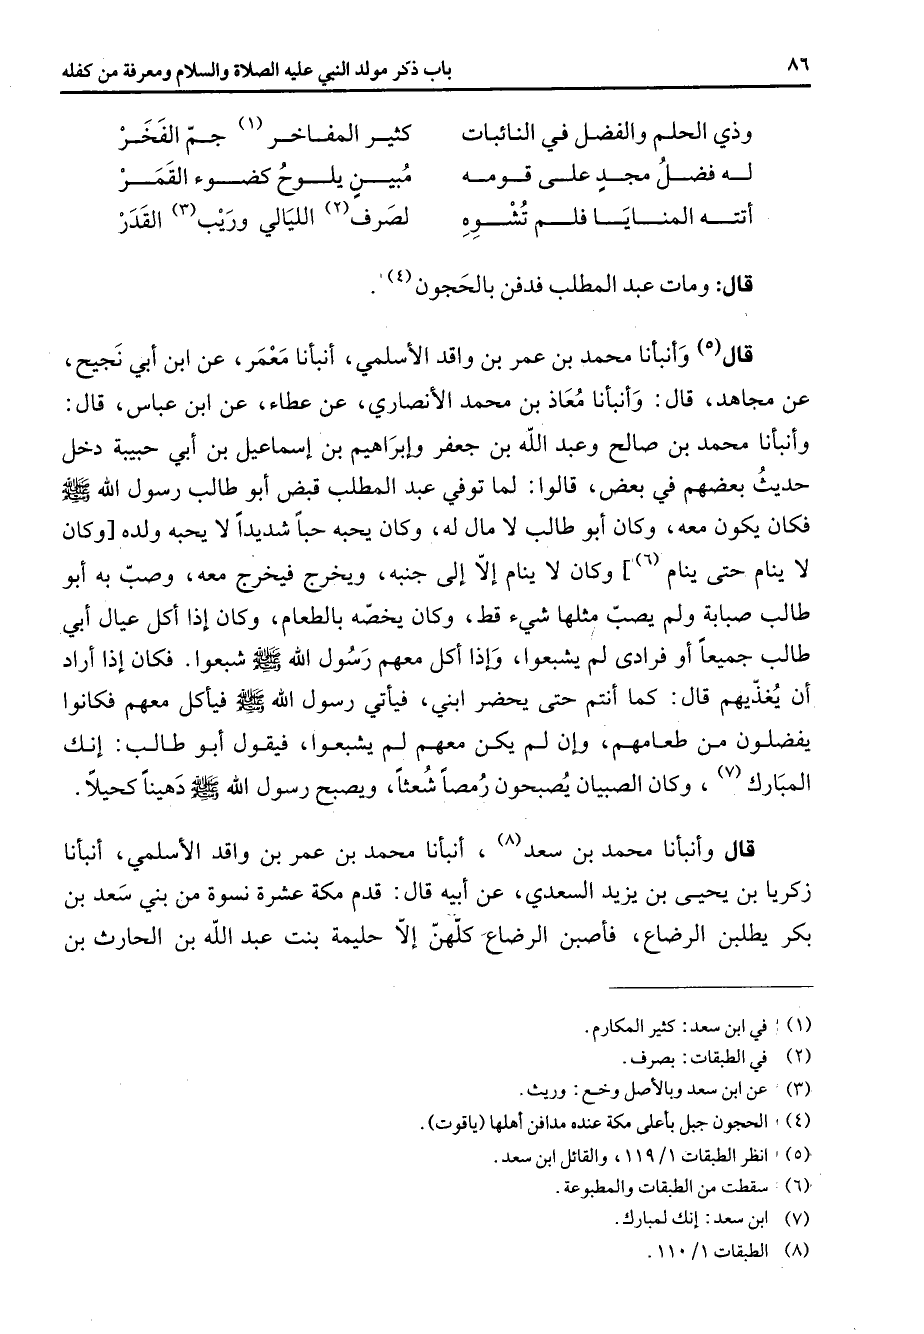 ٨٦ باب ذكر مولد النبي عليه الصلاة والسلام ومعرفة من كفله
وذي الحلم والفضل في النائبات كثير المفاخر (١) جمّ الفَخَرْ
له فضلُ مجدٍ على قومه مُبينٍ يلوحُ كضوء القمَرْ
أتته المنايَا فلم تُشْوِهِ لصَرف(٢) الليَالي ورَيْب(٣) القَدَرْ
قال: ومات عبد المطلب فدفن بالحَجون(٤).
قال(٥) وَأنبأنا محمد بن عمر بن واقد الأسلمي، أنبأنا مَعْمَر، عن ابن أبي نَجيح،
عن مجاهد، قال: وَأنبأنا مُعَاذ بن محمد الأنصاري، عن عطاء، عن ابن عباس، قال:
وأنبأنا محمد بن صالح وعبد اللّه بن جعفر وإبرَاهيم بن إسماعيل بن أبي حبيبة دخل
حديثُ بعضهم في بعض، قالوا: لما توفي عبد المطلب قبض أبو طالب رسول الله ﷺ
فكان يكون معه، وكان أبو طالب لا مال له، وكان يحبه حباً شديداً لا يحبه ولده [وكان
لا ينام حتى ينام (٦)] وكان لا ينام إلاّ إلى جنبه، ويخرج فيخرج معه، وصبّ به أبو
طالب صبابة ولم يصبّ مثلها شيء قط، وكان يخصّه بالطعام، وكان إذا أكل عيال أبي
طالب جميعاً أو فرادى لم يشبعوا، وَإذا أكل معهم رَسُول الله ﷺ شبعوا. فكان إذا أراد
أن يُغذّيهم قال: كما أنتم حتى يحضر ابني، فيأتي رسول الله ﷺ فيأكل معهم فكانوا
يفضلون من طعامهم، وإن لم يكن معهم لم يشبعوا، فيقول أبو طالب: إنك
المبَارك (٧)، وكان الصبيان يُصبحون رُمصاً شُعثاً، ويصبح رسول الله ﷺ دَهيناً كحيلاً.
قال وأنبأنا محمد بن سعد(٨)، أنبأنا محمد بن عمر بن واقد الأسلمي، أنبأنا
زكريا بن يحيى بن يزيد السعدي، عن أبيه قال: قدم مكة عشرة نسوة من بني سَعد بن
بكر يطلبن الرضاع، فأصبن الرضاع كلّهنّ إلاّ حليمة بنت عبد اللّه بن الحارث بن
(١) في ابن سعد: كثير المكارم.
(٢) في الطبقات: بصرف.
(٣) عن ابن سعد وبالأصل وخع: وريث.
(٤) الحجون جبل بأعلى مكة عنده مدافن أهلها (ياقوت).
(٥) انظر الطبقات ١/ ١١٩، والقائل ابن سعد.
(٦) سقطت من الطبقات والمطبوعة.
(٧) ابن سعد: إنك لمبارك.
(٨) الطبقات ١/ ١١٠.